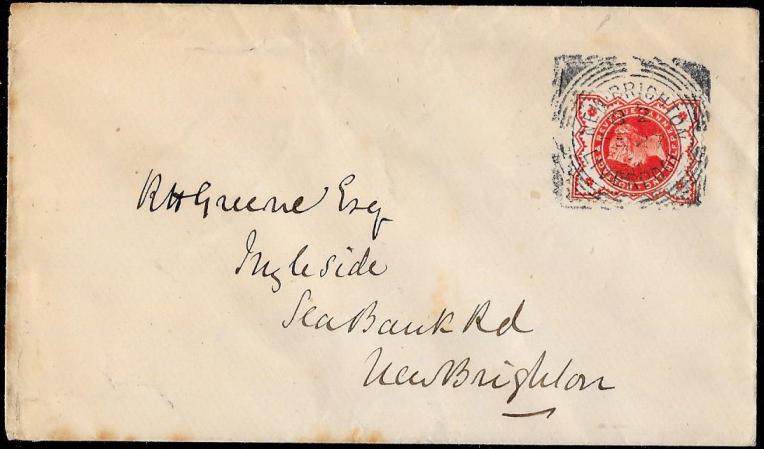 NEW BRIGHTON
R H Greene Esq
Ingleside
Sea Bank Rd
New Brighton